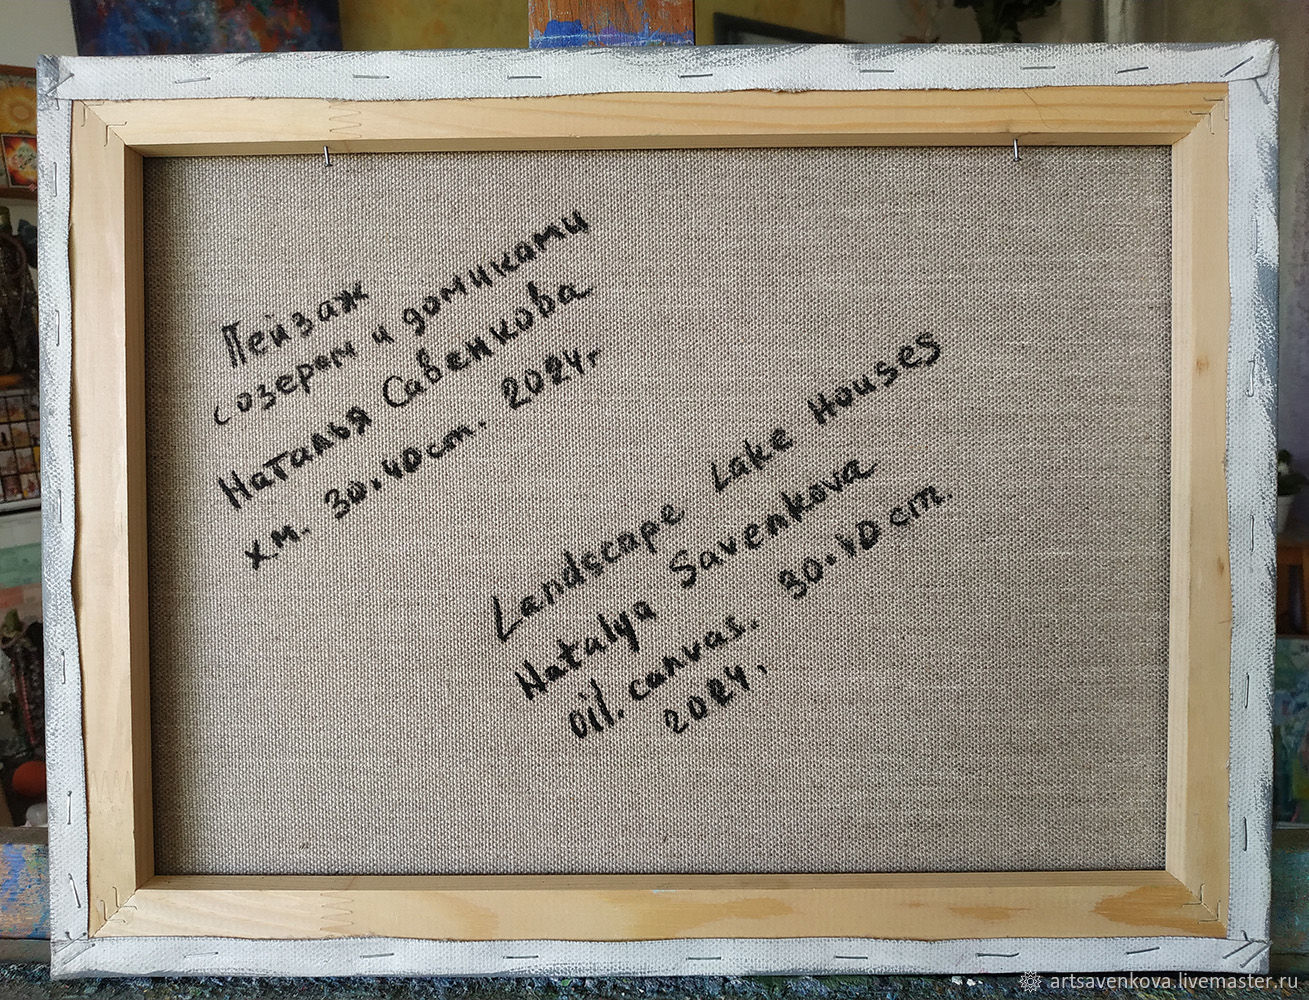 Пейзаж
с озером и домиками
Наталья Савенкова
хм. 30.40 cm. 2024г
Landscape Lake Houses
Natalya Savenkova
oil. canvas. 30.40 cm.
2024.
artsavenkova.livemaster.ru